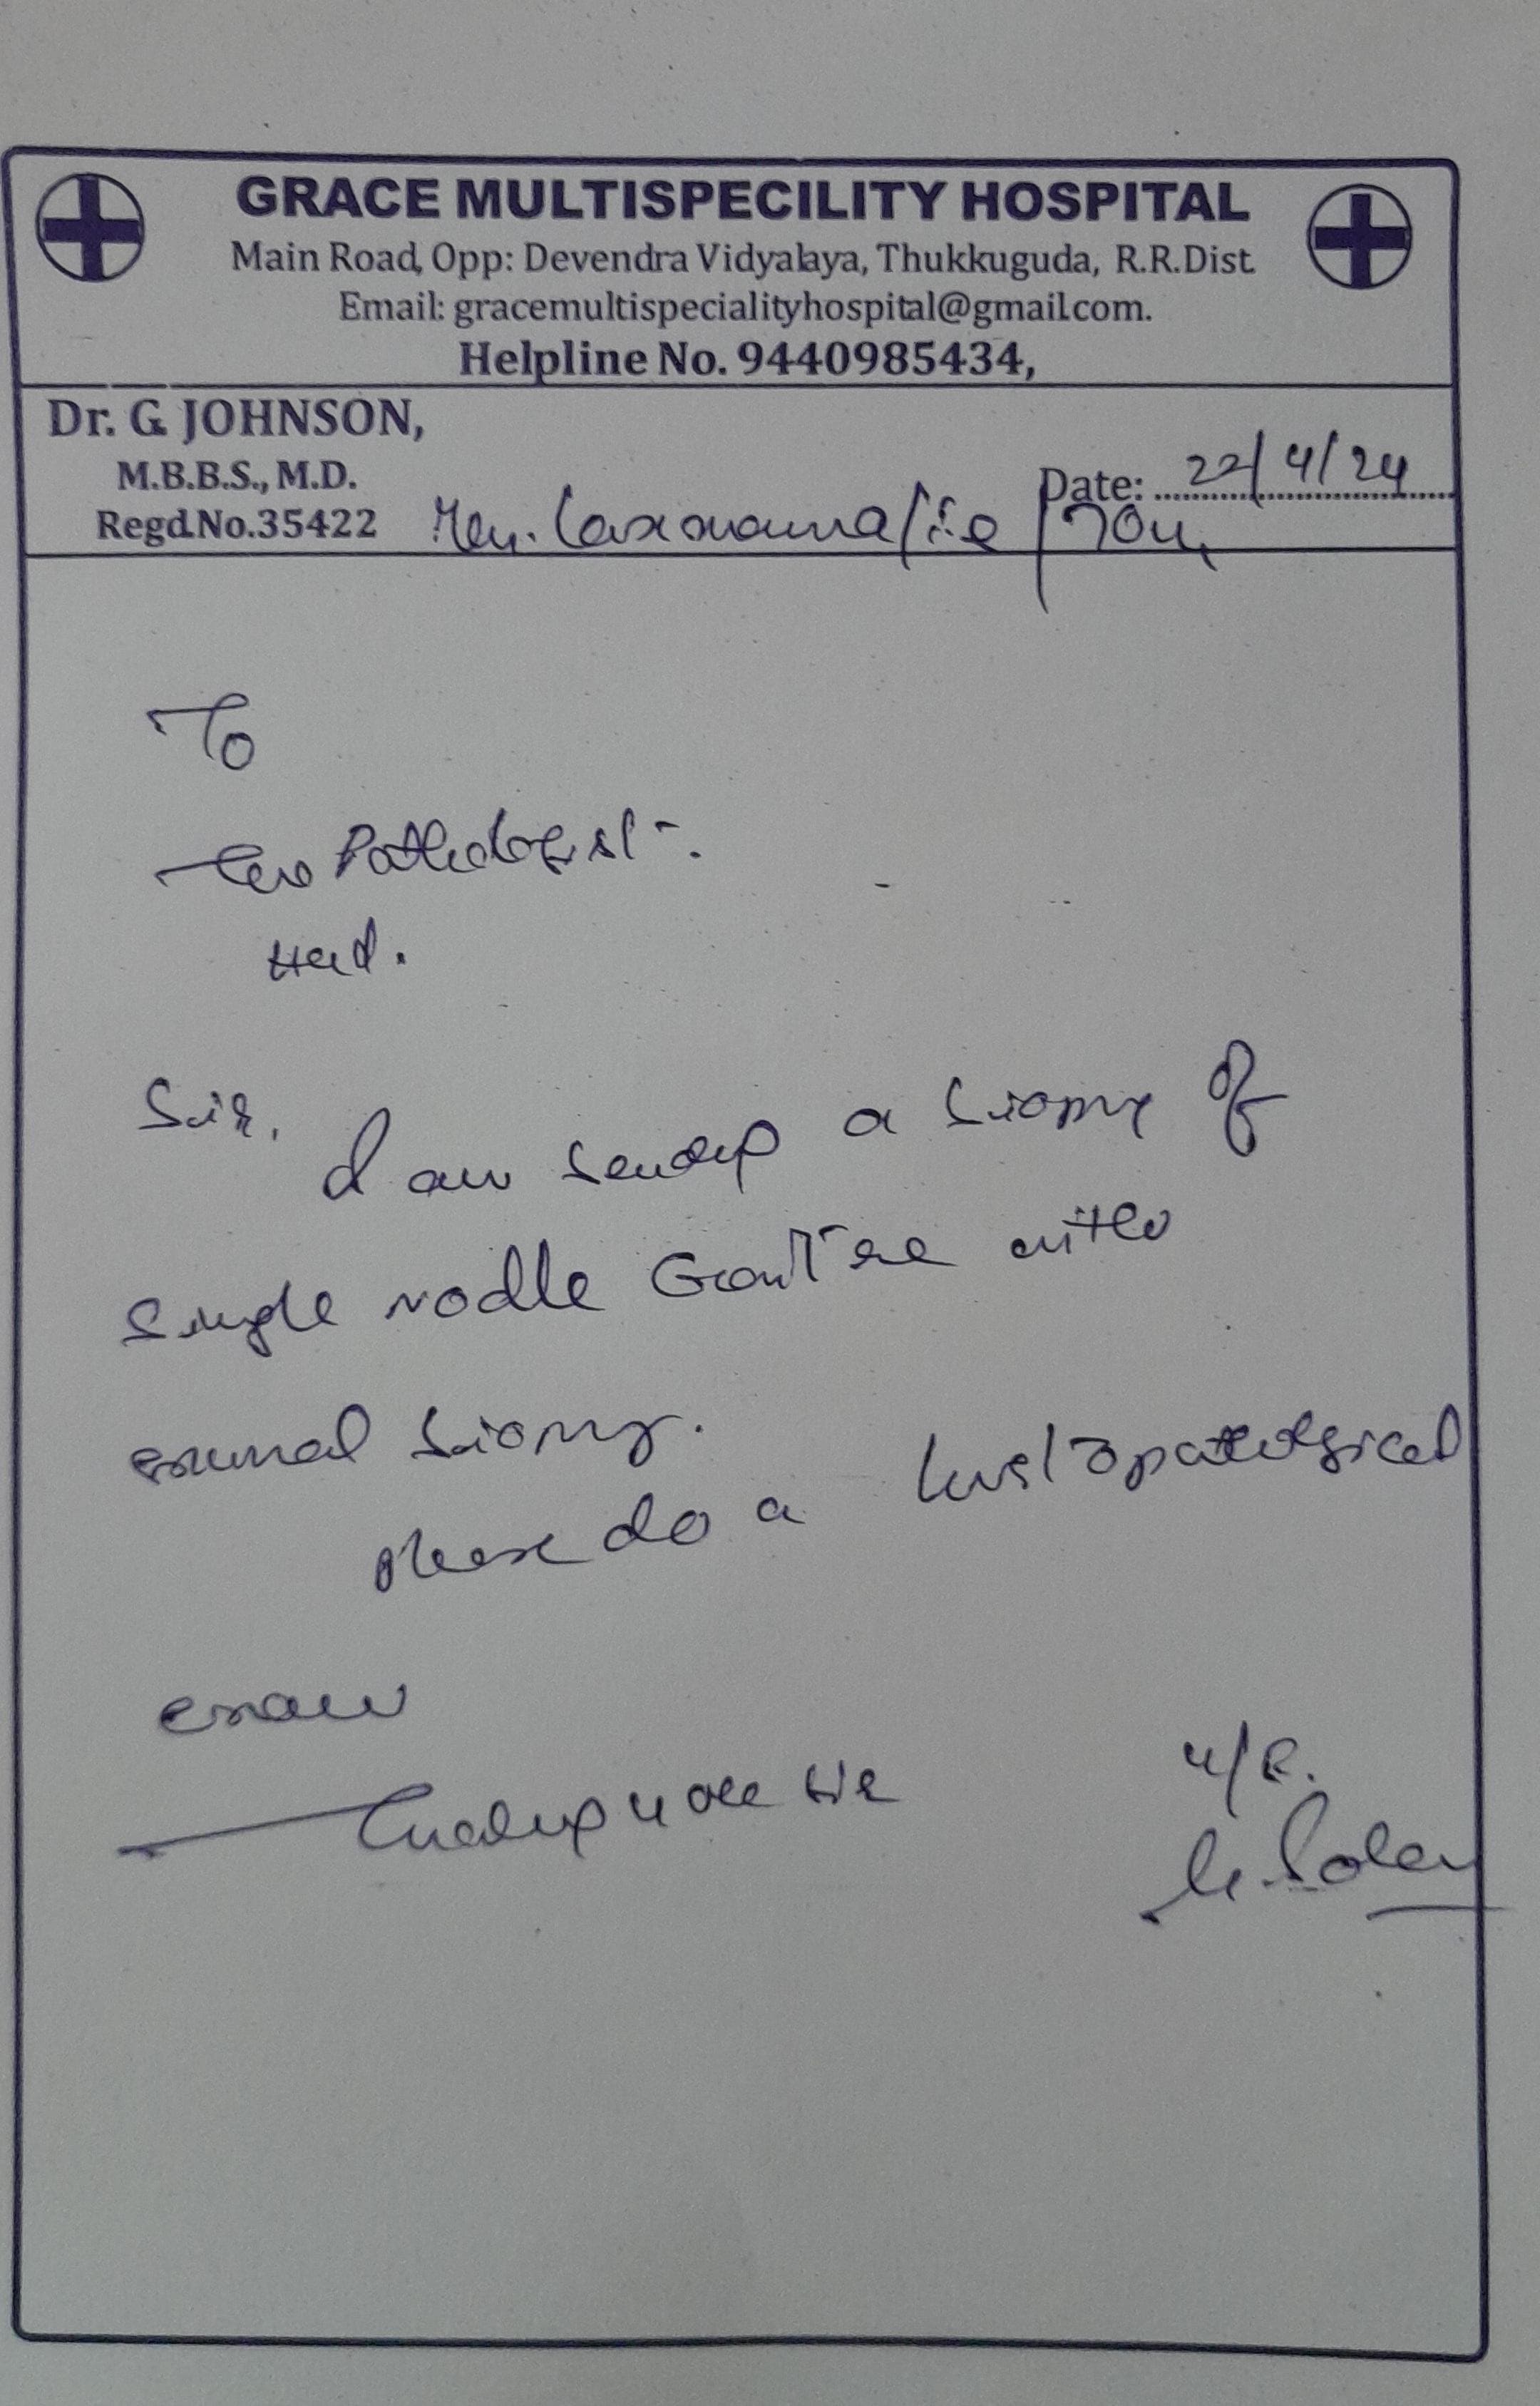 GRACE MULTISPECILITY HOSPITAL
Main Road, Opp: Devendra Vidyalaya, Thukkuguda, R.R.Dist.
Email: gracemultispecialityhospital@gmail.com.
Helpline No. 9440985434,
Dr. G. JOHNSON,
M.B.B.S., M.D.
Regd.No.35422
Date: 22/4/24
To
The Pathologist.
Sir, I am sending a of
Single
please do a histopathological
exam
Thanking u sir